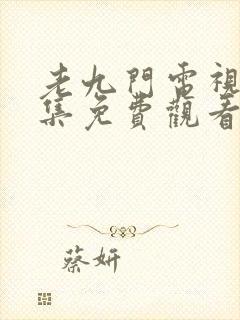 老九門電視
集免費觀看
蔡妍